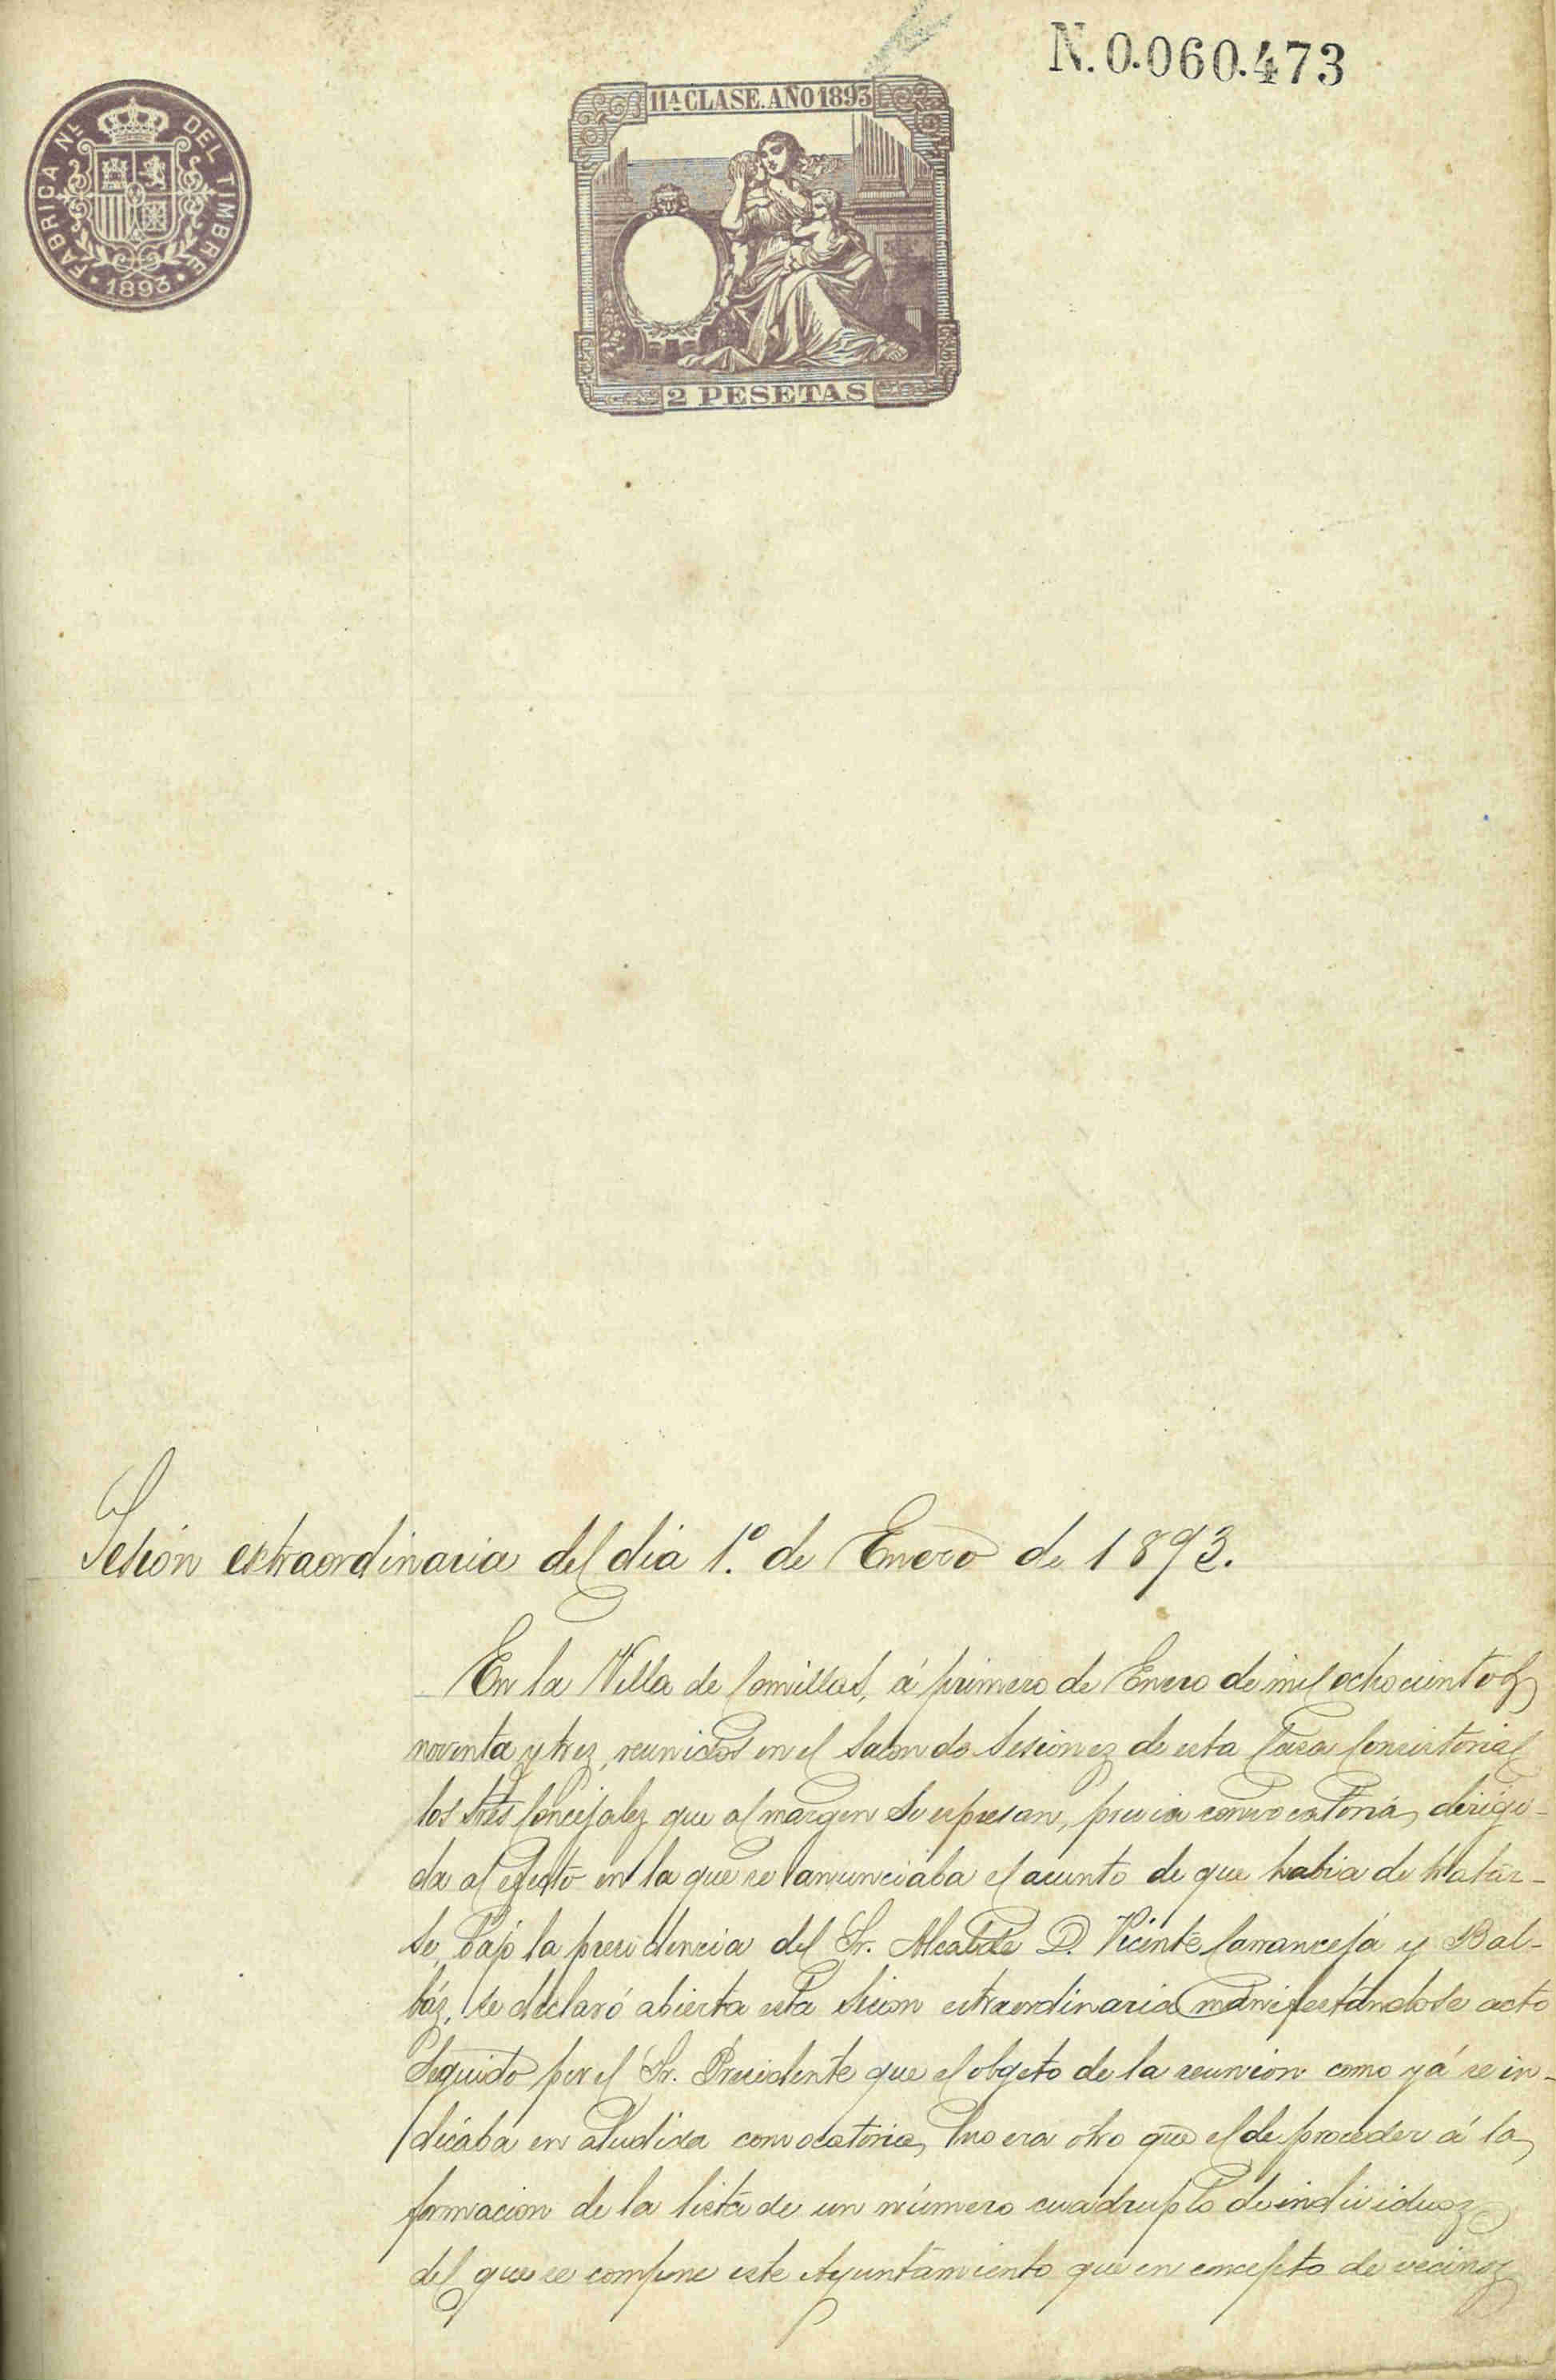 N. 0.060.473
FABRICA NL. DEL TIMBRE
1893
11A CLASE. AÑO 1893
2 PESETAS
Sesión extraordinaria del dia 1.º de Enero de 1893.
En la Villa de Comillas, á primero de Enero de mil ochocientos
noventa y tres, reunidos en el Salon de Sesiones de esta Casa Consistorial
los Sres Concejales que al margen se espresan, previa convocatoria, dirigi-
da al efecto en la que se anunciaba el asunto de que habia de tratar-
se, bajo la presidencia del Sr. Alcalde D. Vicente Carranceja y Bal-
báz, se declaró abierta esta sesion extraordinaria manifestándose acto
seguido por el Sr. Presidente que el obgeto de la reunion como yá se in-
dicaba en aludida convocatoria, no era otro que el de proceder á la
formacion de la lista de un número cuadruplo de individuos
del que se compone este Ayuntamiento que en concepto de vecinos